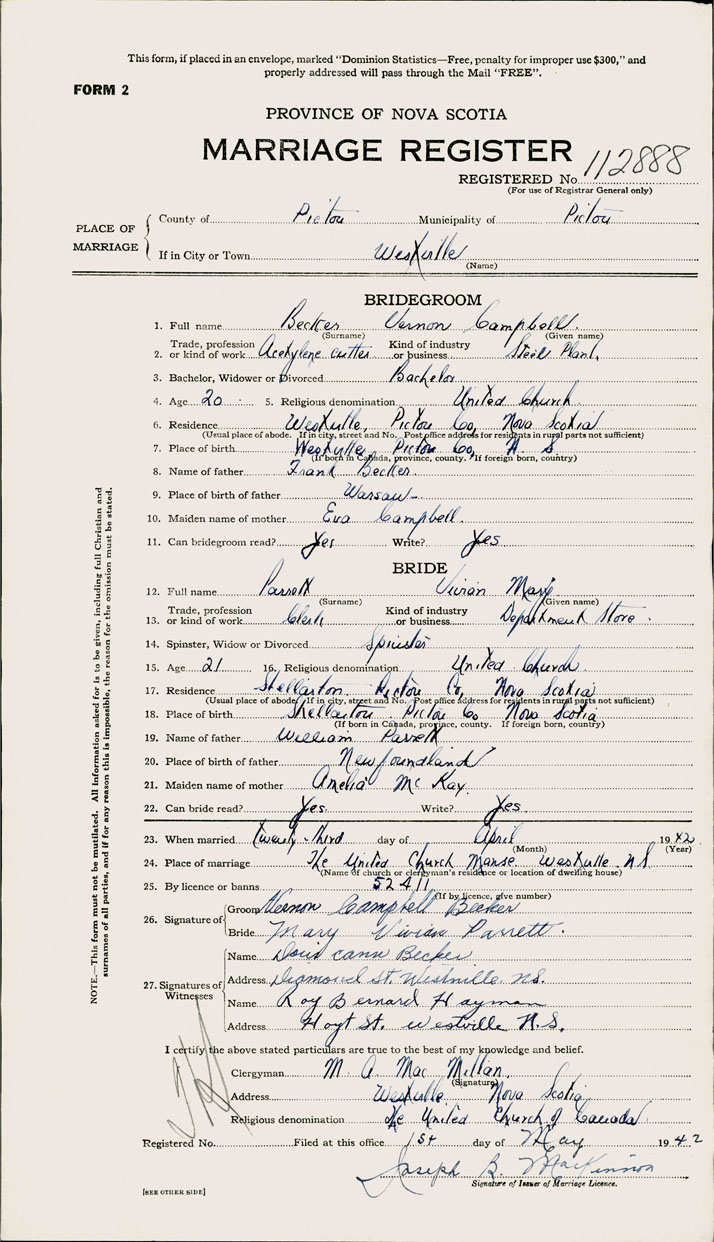 This form, if placed in an envelope, marked "Dominion Statistics—Free, penalty for improper use $300," and
properly addressed will pass through the Mail "FREE".
FORM 2
PROVINCE OF NOVA SCOTIA
MARRIAGE REGISTER
REGISTERED No. 112888
(For use of Registrar General only)
PLACE OF MARRIAGE
County of Pictou Municipality of Pictou
If in City or Town Westville
(Name)
BRIDEGROOM
1. Full name Becker Vernon Campbell.
(Surname) (Given name)
2. Trade, profession or kind of work Acetylene cutter Kind of industry or business Steel Plant,
3. Bachelor, Widower or Divorced Bachelor
4. Age 20 5. Religious denomination United Church
6. Residence Westville, Pictou Co, Nova Scotia
(Usual place of abode. If in city, street and No. Post office address for residents in rural parts not sufficient)
7. Place of birth Westville Pictou Co, N. S.
(If born in Canada, province, county. If foreign born, country)
8. Name of father Frank Becker
9. Place of birth of father Warsaw
10. Maiden name of mother Eva Campbell.
11. Can bridegroom read? Yes Write? Yes
BRIDE
12. Full name Parrett Vivian Mary
(Surname) (Given name)
13. Trade, profession or kind of work Clerk Kind of industry or business Department Store.
14. Spinster, Widow or Divorced Spinster
15. Age 21 16. Religious denomination United Church
17. Residence Stellarton Pictou Co, Nova Scotia
(Usual place of abode. If in city, street and No. Post office address for residents in rural parts not sufficient)
18. Place of birth Stellarton Pictou Co Nova Scotia
(If born in Canada, province, county. If foreign born, country)
19. Name of father William Parrett
20. Place of birth of father Newfoundland
21. Maiden name of mother Amelia McKay.
22. Can bride read? Yes Write? Yes
23. When married twenty-third day of April 1942
(Month) (Year)
24. Place of marriage The United Church Manse Westville N S
(Name of church or clergyman's residence or location of dwelling house)
25. By licence or banns 52411
(If by licence, give number)
26. Signature of Groom Vernon Campbell Becker
Bride Mary Vivian Parrett.
27. Signatures of Witnesses
Name Becker
Address Diamond St. Westville. N.S.
Name Roy Bernard Hayman
Address Hoyt St. Westville N.S.
I certify the above stated particulars are true to the best of my knowledge and belief.
Clergyman M. A. MacMillan.
(Signature)
Address Westville Nova Scotia
Religious denomination The United Church of Canada
Registered No. Filed at this office 1st day of May 1942
Joseph B. MacKinnon
Signature of Issuer of Marriage Licence.
[SEE OTHER SIDE]
NOTE.—This form must not be mutilated. All Information asked for is to be given, including full Christian and
surnames of all parties, and if for any reason this is impossible, the reason for the omission must be stated.